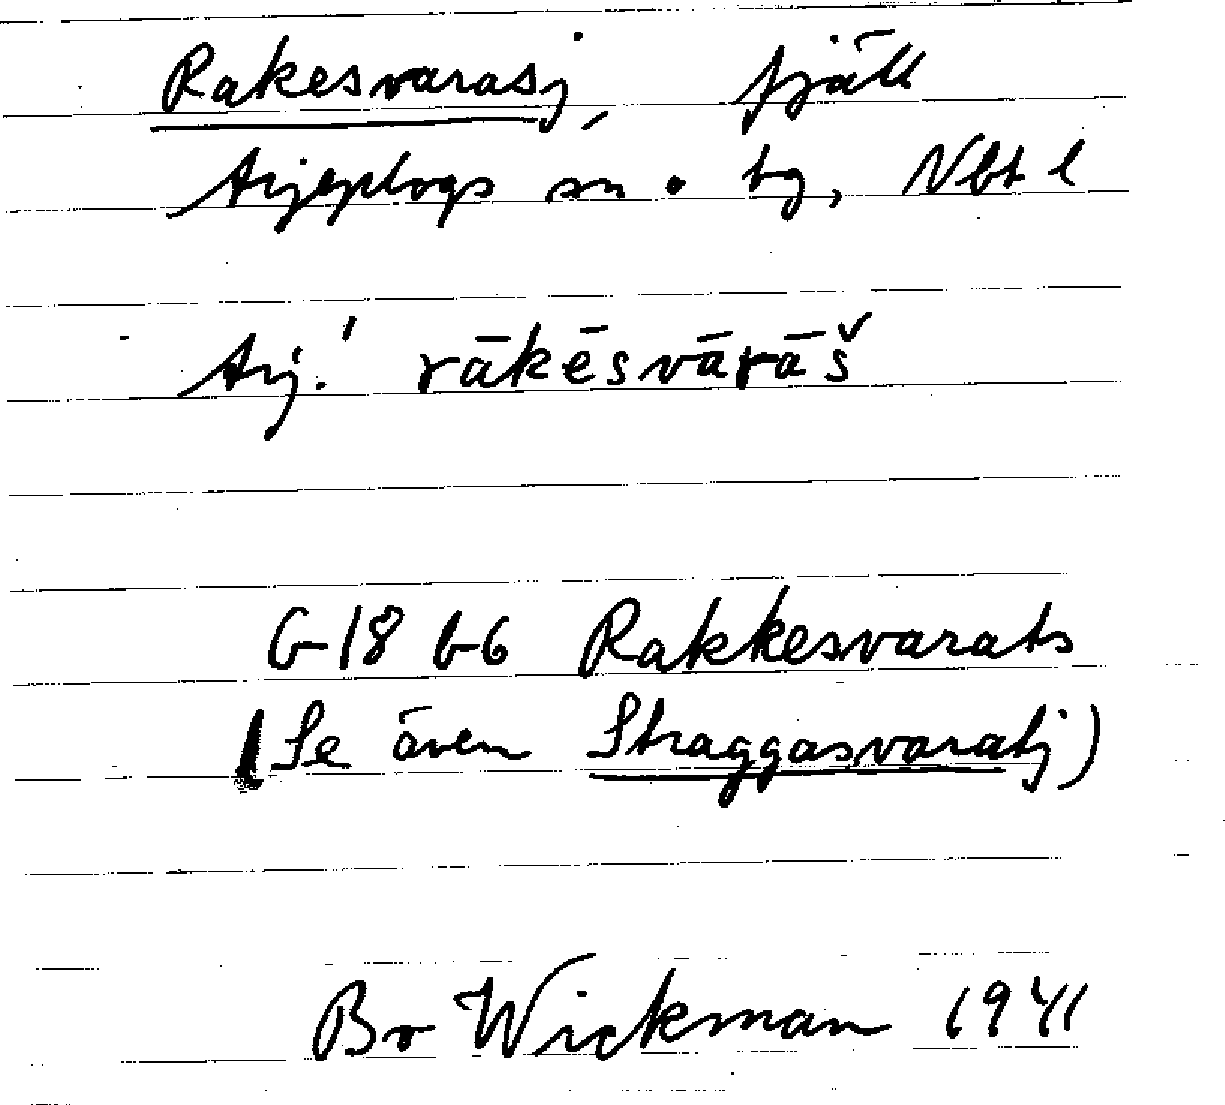 Rakesvarasj, fjäll
Arjeplogs sn o tg, Nbt l
Arj.' rākēsvārāš
G 18 b6 Rakkesvarats
(Se även Straggasvaratj)
Bo Wickman 1941